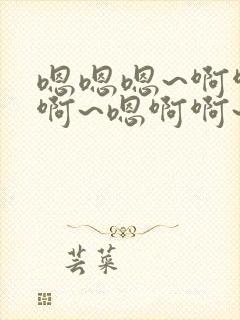 嗯嗯嗯~啊啊
啊~嗯啊啊~
芸菜